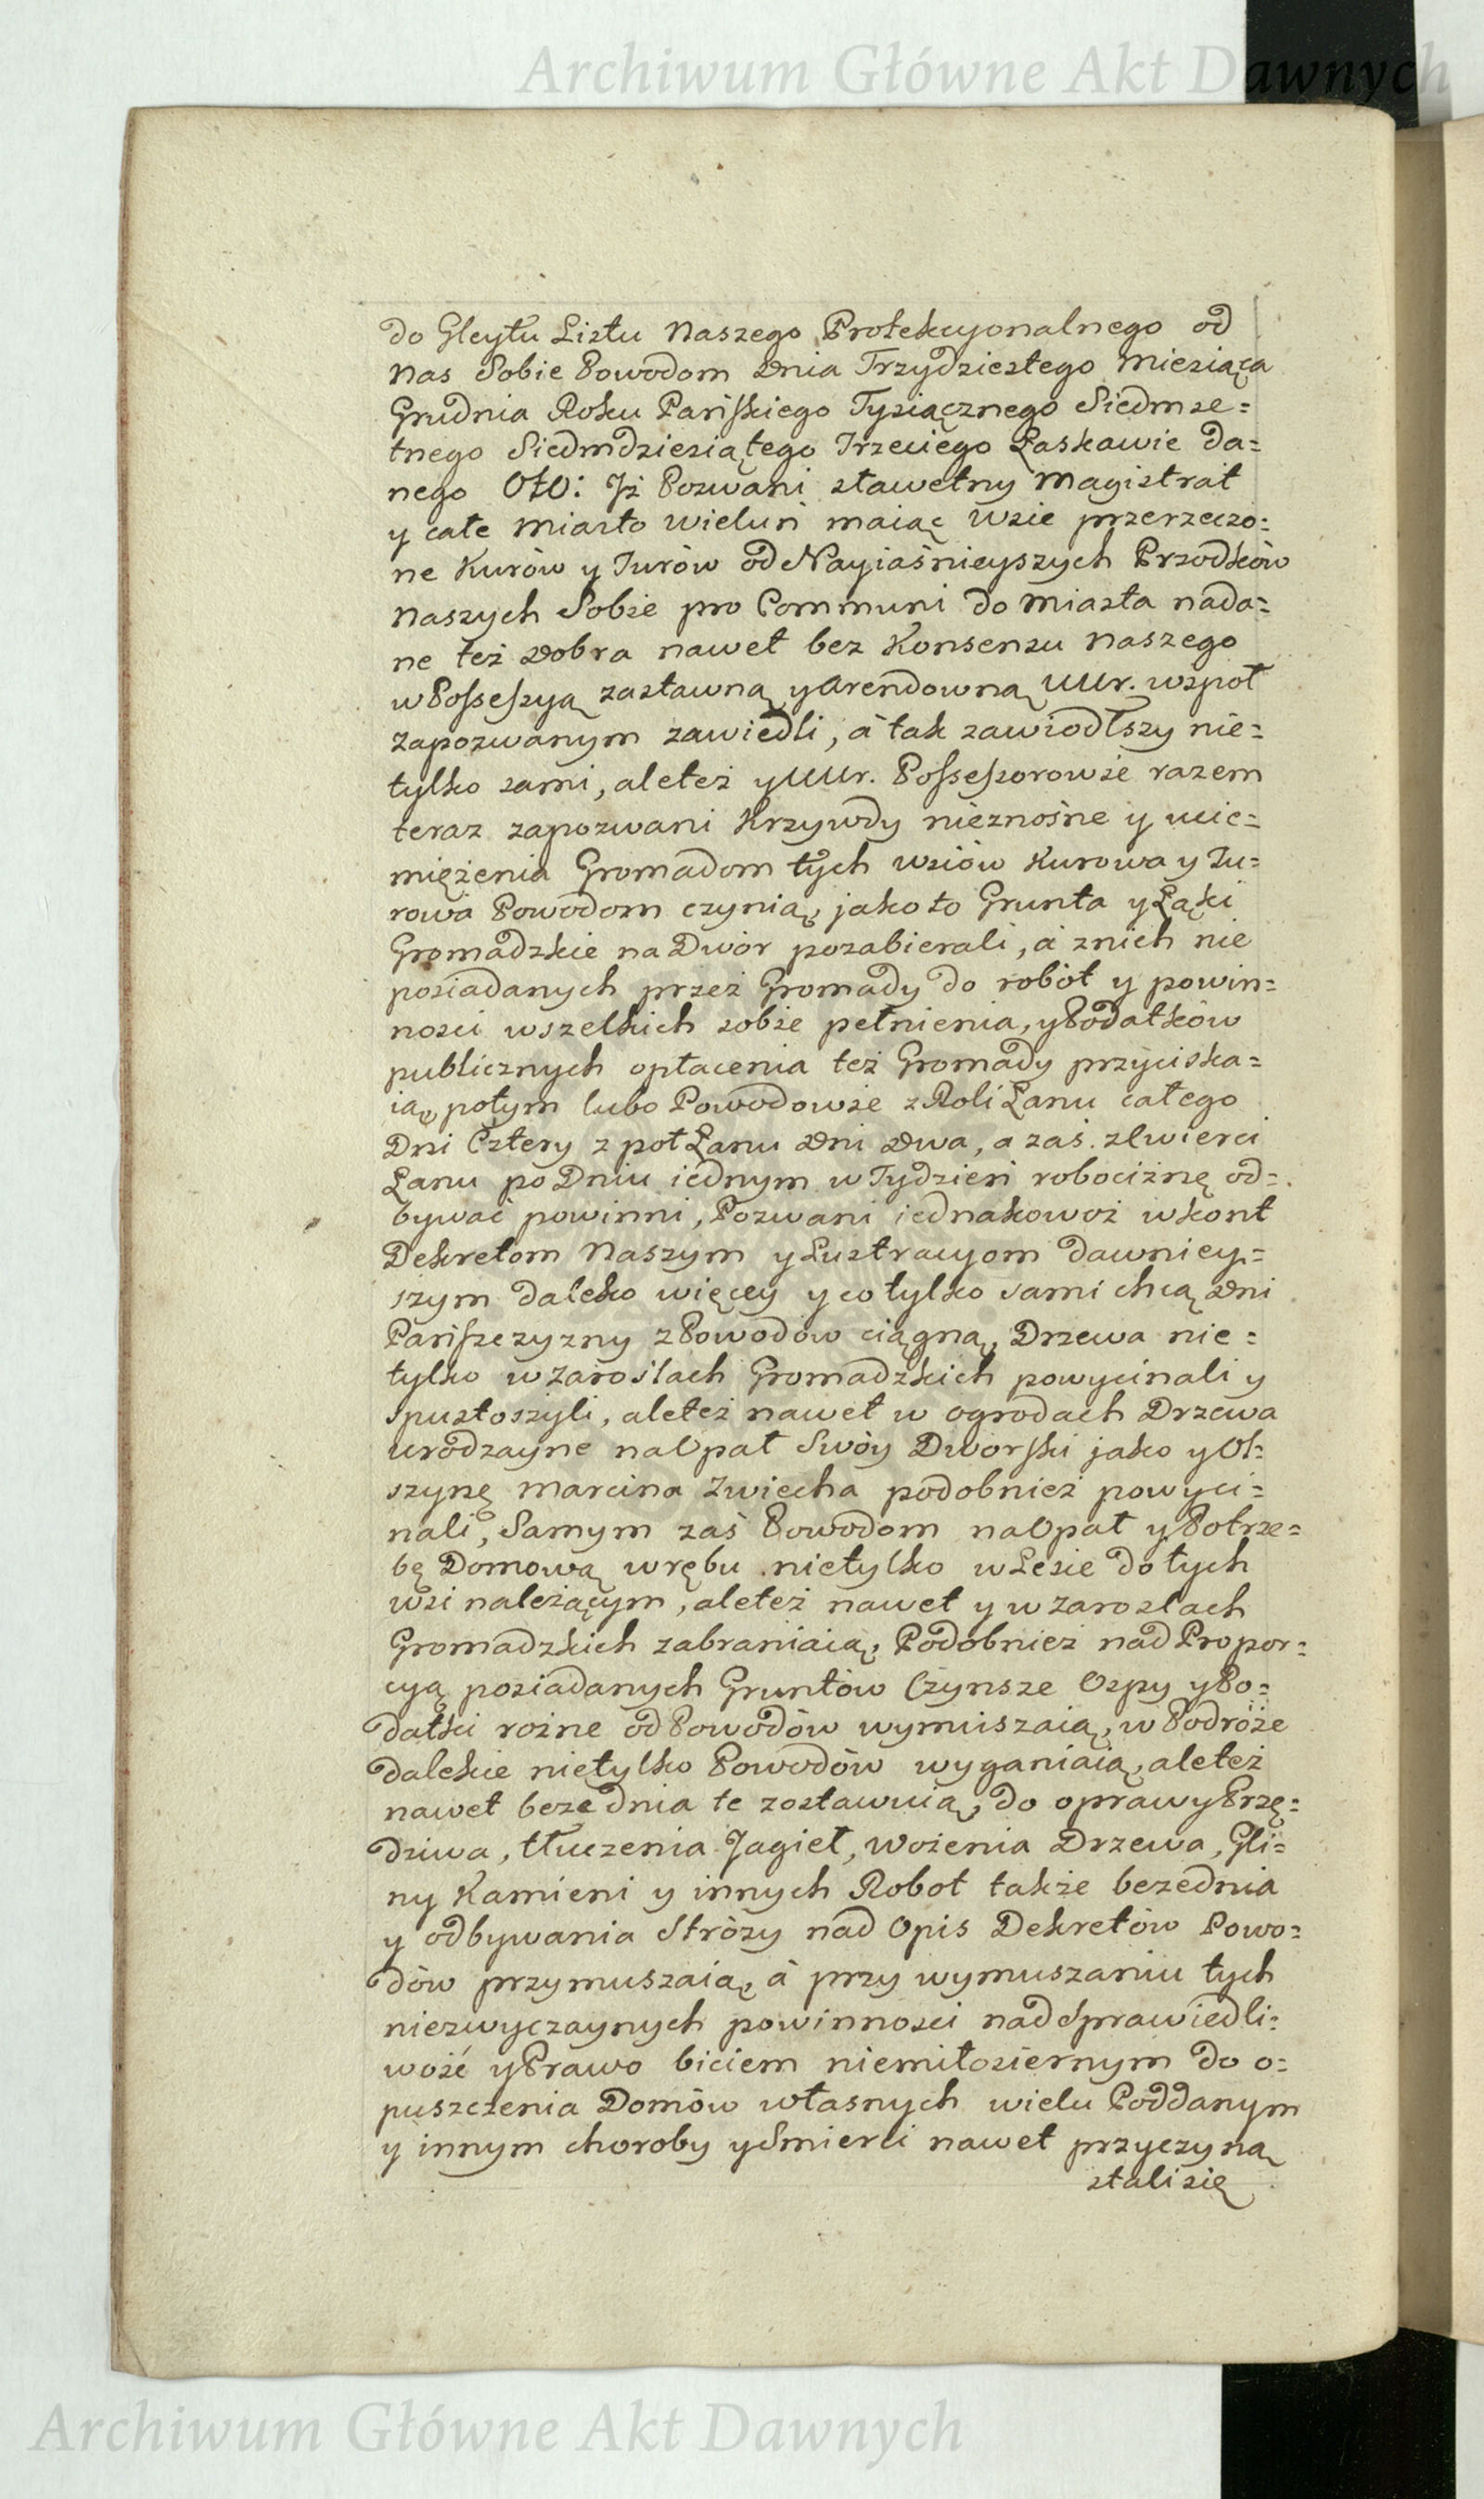 Archiwum Główne Akt Dawnych
do Gleytu Listu Naszego Protekcyonalnego od
Nas Sobie Powodom Dnia Trzydziestego Miesiąca
Grudnia Roku Pańskiego Tysiącznego Siedmse=
tnego Siedmdziesiątego Trzeciego Łaskawie da=
nego Oto: Jż Pozwani sławetny Magistrat
y całe Miasto Wieluń maiąc Wsie przerzeczo=
ne Kurów y Turów od Nayiaśnieyszych Przodków
Naszych Sobie pro Communi do Miasta nada=
ne też Dobra nawet bez Konsensu Naszego
w Possessyą zastawną y Arendowną UUr. wspoł
zapozwanym zawiedli, á tak zawiodłszy nie=
tylko sami, aleteż y UUr. Possessorowie razem
teraz zapozwani Krzywdy nieznośne y ucie=
miężenia Gromadom tych wsiów Kurowa y Tu=
rowa Powodom czynią, jako to Grunta y Łąki
Gromadzkie na Dwór pozabierali, á z nich nie
posiadanych przez Gromady do robót y powin=
ności wszelkich sobie pełnienia, y Podatków
publicznych opłacenia też Gromady przyciska=
ią, potym lubo Powodowie z Roli Łanu całego
Dni Cztery z poł Łanu Dni Dwa, a zaś z ćwierci
Łanu po Dniu iednym w Tydzień robociznę od=
bywać powinni, Pozwani iednakowoż wkont
Dekretom Naszym y Lustracyom dawniey=
szym daleko więcey y co tylko sami chcą Dni
Pańszczyzny z Powodów ciągną, Drzewa nie=
tylko w Zaroślach Gromadzkich powycinali y
spustoszyli, aleteż nawet w ogrodach Drzewa
urodzayne na Opał Swóy Dworski jako y Ol=
szynę Marcina Zwiecha podobnież powyci=
nali, Samym zaś Powodom na Opał y Potrze=
bę Domową wrębu nietylko w Lesie do tych
wsi należącym, aleteż nawet y w Zaroslach
Gromadzkich zabraniaią, Podobnież nad Propor=
cyą posiadanych Gruntów Czynsze Ospy y Po=
datki rożne od Powodów wymuszaią, w Podróże
dalekie nietylko Powodów wyganiaią, aleteż
nawet beze dnia te zostawuią, do oprawy Przę=
dziwa, tłuczenia Jagieł, Wożenia Drzewa, Gli=
ny Kamieni y innych Robot także bezednia
y odbywania Stróży nad Opis Dekretów Powo=
dów przymuszaią, á przy wymuszaniu tych
niezwyczaynych powinności nad Sprawiedli=
wość y Prawo biciem niemiłosiernym do o=
puszczenia Domów własnych wielu Poddanym
y innym choroby y Smierci nawet przyczyną
stali się
Archiwum Główne Akt Dawnych